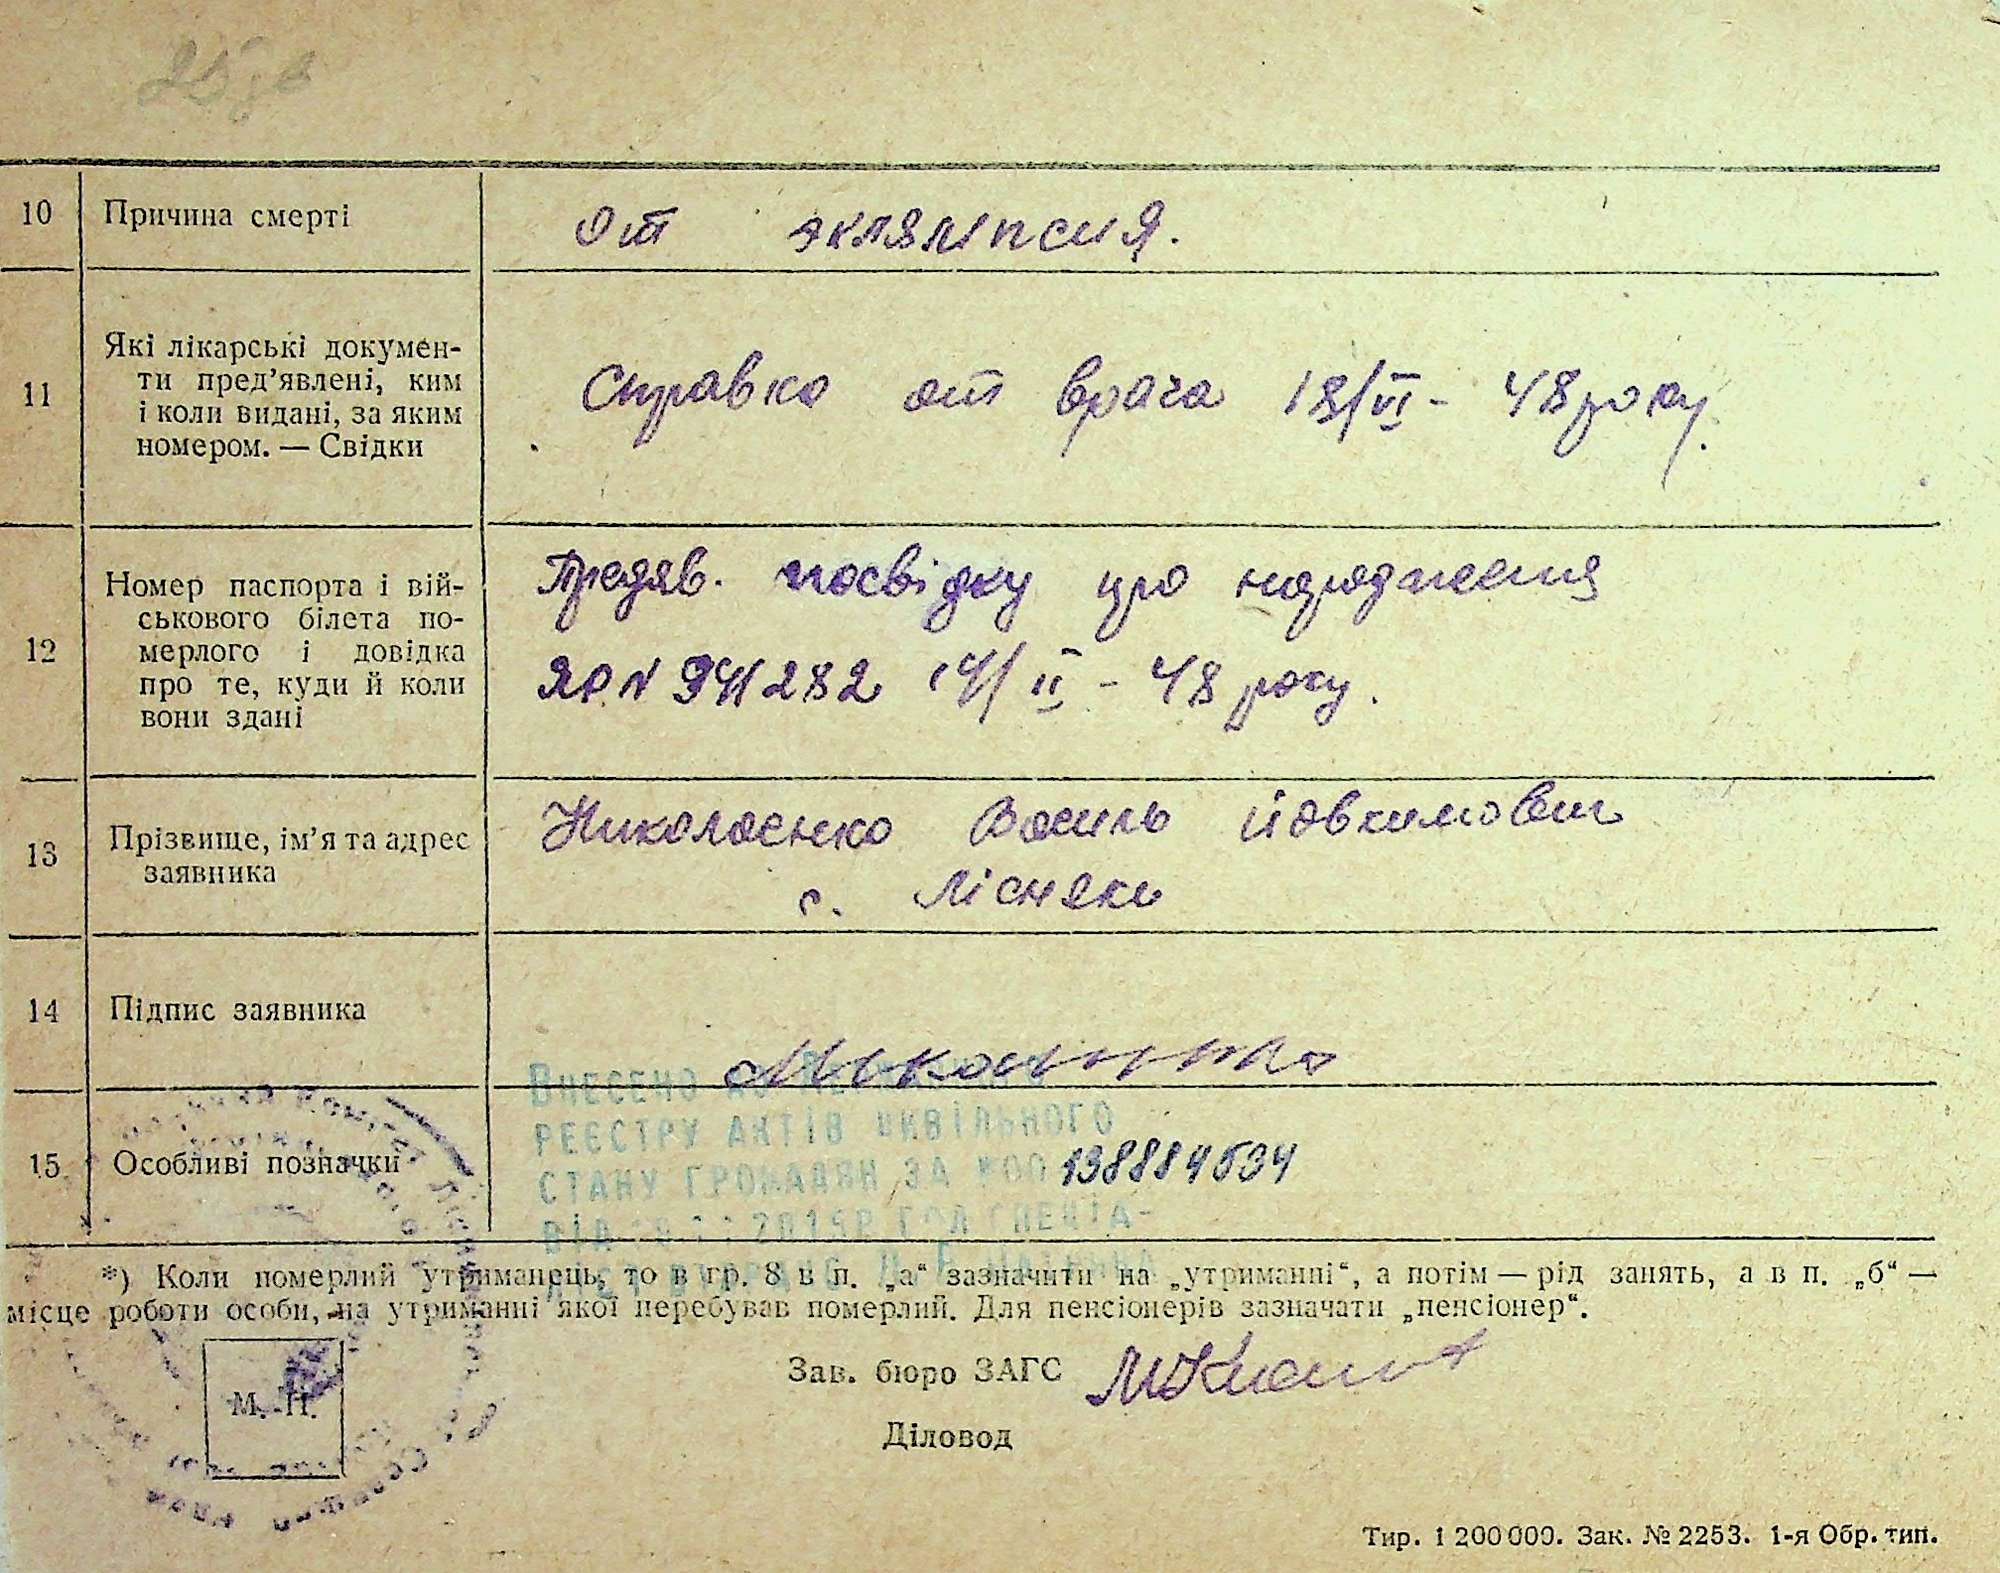 10 Причина смерті от эклямпсия.
11 Які лікарські докумен-
ти пред’явлені, ким
і коли видані, за яким
номером. — Свідки
Справка от врача 18/VI - 48 року.
12 Номер паспорта і вій-
ськового білета по-
мерлого і довідка
про те, куди й коли
вони здані
Предяв. посвідку про народження
ЯР N 941282 14/II - 48 року.
13 Прізвище, ім’я та адрес
заявника
Николаенко Василь Йовхимович
с. Лісняки
14 Підпис заявника
15 Особливі позначки
Внесено до
реєстру актів цивільного
стану громадян за 138884534
*) Коли померлий утриманець, то в гр. 8 в п. „а“ зазначити на „утриманні“, а потім — рід занять, а в п. „б“ —
місце роботи особи, на утриманні якої перебував померлий. Для пенсіонерів зазначати „пенсіонер“.
Зав. бюро ЗАГС
М. П.
Діловод
Тир. 1 200 000. Зак. № 2253. 1-я Обр. тип.